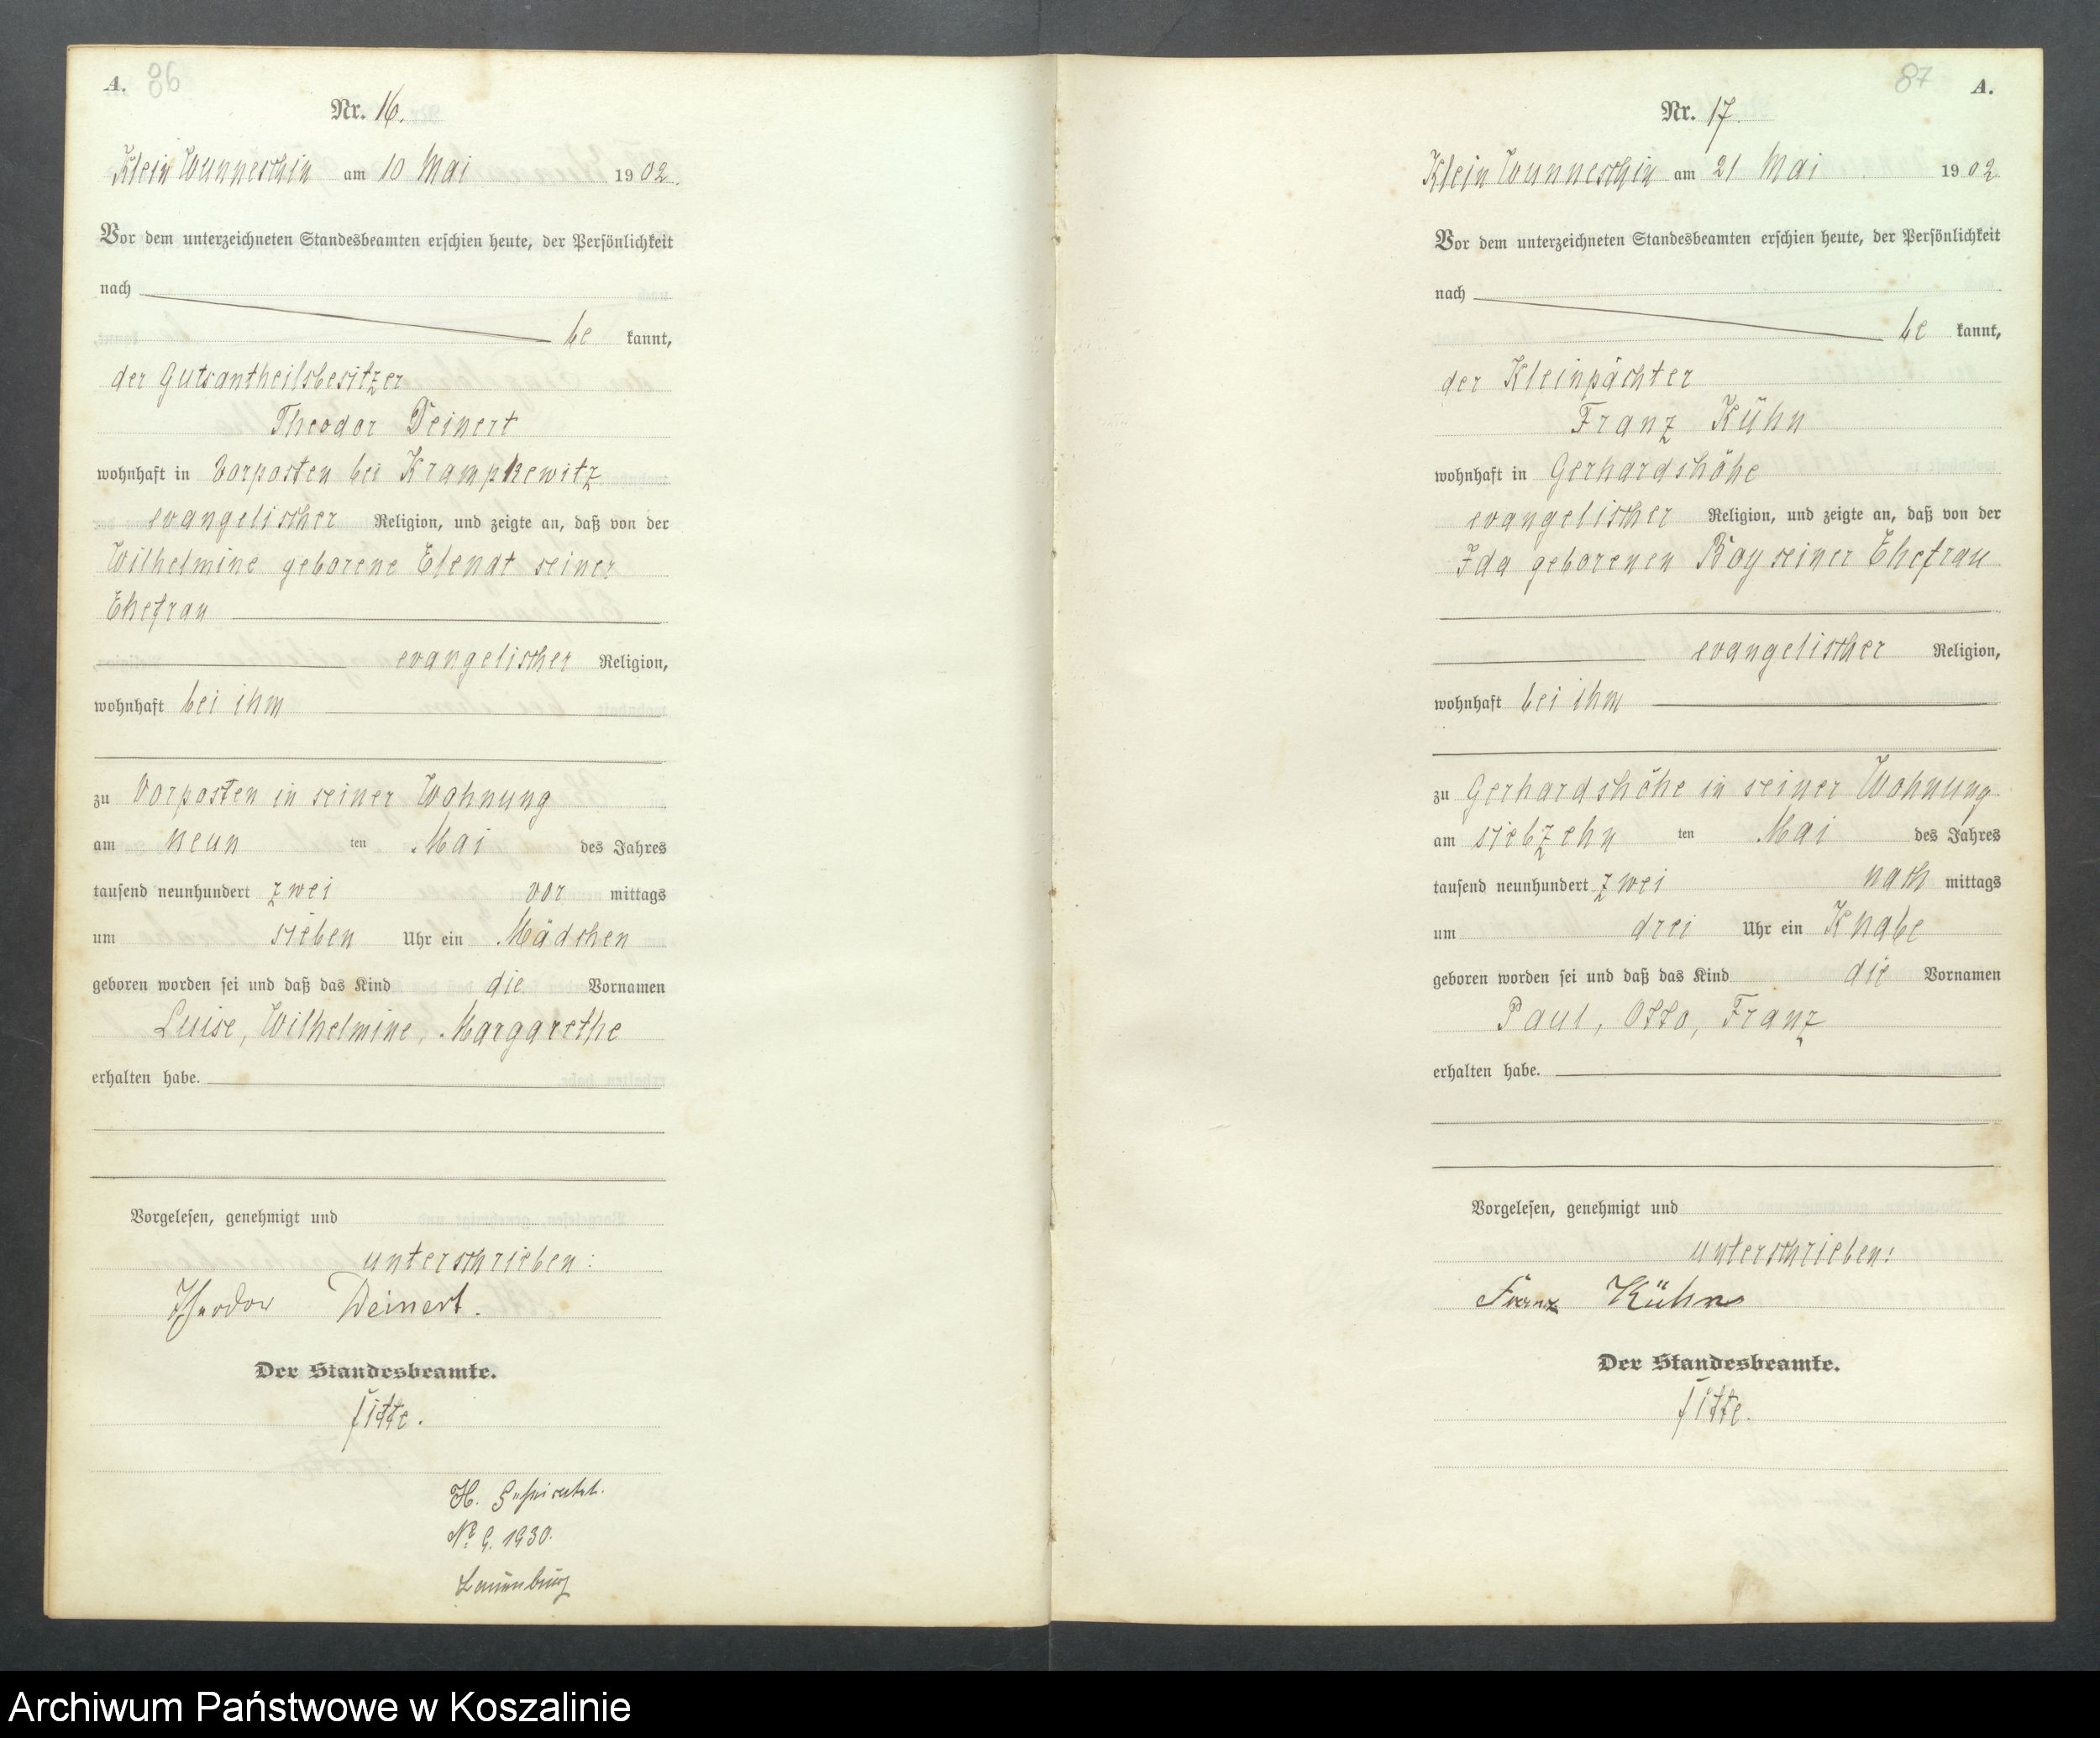 A. 86
Nr. 16.
Klein Wunneschin am 10 Mai 1902.
Vor dem unterzeichneten Standesbeamten erschien heute, der Persönlichkeit
nach
be kannt,
der Gutsantheilsbesitzer
Theodor Deinert
wohnhaft in Vorposten bei Krampkewitz
evangelischer Religion, und zeigte an, daß von der
Wilhelmine geborene Elendt seiner
Ehefrau
evangelischer Religion,
wohnhaft bei ihm
zu Vorposten in seiner Wohnung
am neun ten Mai des Jahres
tausend neunhundert zwei vor mittags
um sieben Uhr ein Mädchen
geboren worden sei und daß das Kind die Vornamen
Luise, Wilhelmine, Margarethe
erhalten habe.
Vorgelesen, genehmigt und
unterschrieben:
Theodor Deinert.
Der Standesbeamte.
Titte.
H.
No 9. 1930.
Lauenburg
87 A.
Nr. 17.
Klein Wunneschin am 21 Mai 1902
Vor dem unterzeichneten Standesbeamten erschien heute, der Persönlichkeit
nach
be kannt,
der Kleinpächter
Franz Kühn
wohnhaft in Gerhardshöhe
evangelischer Religion, und zeigte an, daß von der
Ida geborenen Roy seiner Ehefrau
evangelischer Religion,
wohnhaft bei ihm
zu Gerhardshöhe in seiner Wohnung
am siebzehn ten Mai des Jahres
tausend neunhundert zwei nach mittags
um drei Uhr ein Knabe
geboren worden sei und daß das Kind die Vornamen
Paul, Otto, Franz
erhalten habe.
Vorgelesen, genehmigt und
unterschrieben:
Franz Kühn
Der Standesbeamte.
Titte.
Archiwum Państwowe w Koszalinie